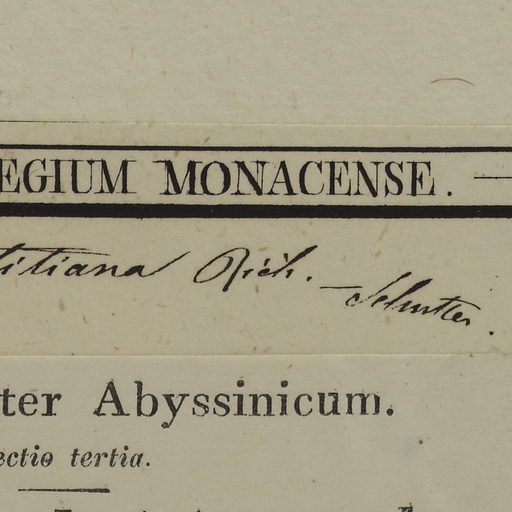 EGIUM MONACENSE. —
titiana Rich.
ter Abyssinicum.
ectio tertia.